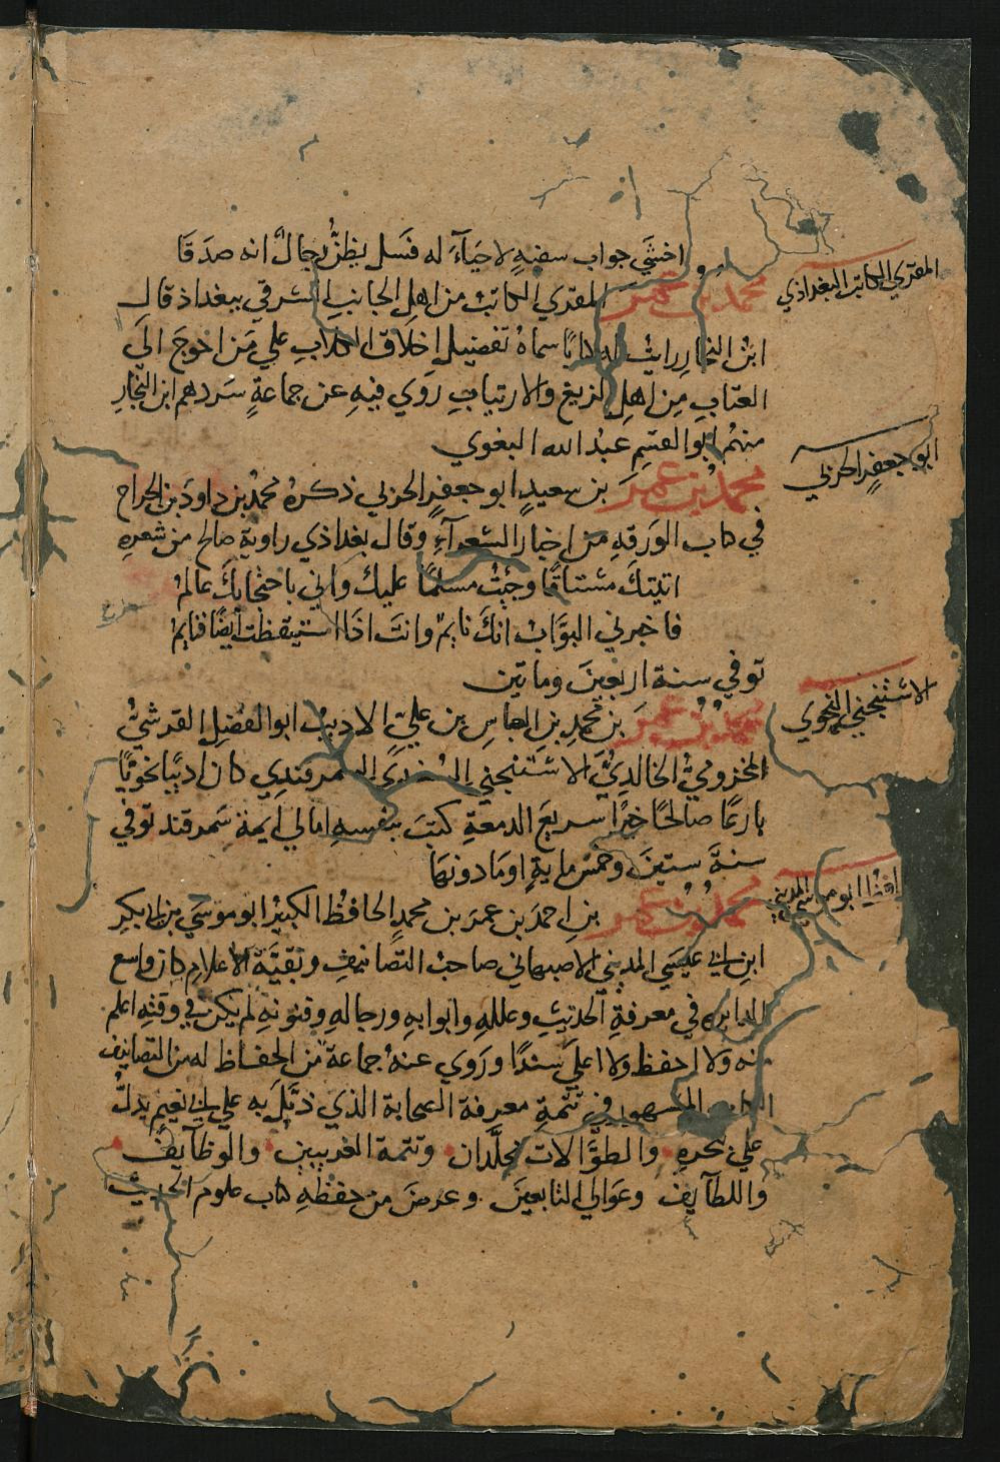 اخشى جواب سفيهٍ لا حيآءَ له فَسل يظنُّ رجالٌ انه صدَقَا
المقري الكاتب البغداذي
محمد بن عمر المقري الكاتب من اهل الجانب الشرقي ببغداذ قال
ابن النجار رايت له كتابًا سماه تفضيل اخلاق الكلاب علي مَن احوجَ الَي
العتاب مِن اهل الزيغ والارتياب رَوي فيهِ عن جماعةٍ سَردهم ابن النجار
منهم ابو القسم عبد الله البغوي
ابو جعفر الحربي
محمد بن عمر بن سعيد ابو جعفر الحربي ذكرهُ محمد بن داودَ بن الجراح
في كتاب الوَرقهِ من اخبار الشعرآءِ وقال بغداذي راوية صالح من شعرهِ
اتيتكَ مشتاقًا وجئتُ مسلمًا عليك واني باحتجابكَ عالمُ
فاخبرني البوَّابُ انكَ نايمٌ وانتَ اذَا استيقظت ايضًا فنايمُ
توفي سنة اربعينَ وماتين
الاشتنجني النحوي
محمد بن عمرَ بن محمدِ بنِ العباسِ بن عليٍّ الاديبُ ابو الفضلِ القرشيُّ
المخزوميُّ الخالديُّ الاشتنجني السمرقندي كان اديبًا نحويًّا
بارعًا صالحًا خيرًا سريعَ الدمعةِ كتبَ بنفسهِ امالي ايمة سَمرقند توفي
سنةَ ستينَ وخمس مايةٍ اومَا دونهَا
الحافظ ابو موسي المديني
محمد بن عمر بنِ احمدَ بن عمرَ بن محمدٍ الحافظُ الكبيرُ ابو موسَي بن ابي بكرِ
ابنِ ابي عيسَي المديني الاصبهاني صاحبُ التصَانيفِ وبقيَّة الاعلامِ كان واسع
الدايرة في معرفةِ الحديثِ وعللهِ وابوابهِ ورجالهِ وفنونهِ لم يكن في وقتهِ اعلم
منه وَلا احفظ ولا اعلَي سندًا ورَوي عنهُ جماعة من الحفاظ له من التصانيف
الكتاب المشهور في تتمةِ معرفة الصحابة الذي ذيَّلَ به علي ابي نعيم يدلُّ
علي تبحرهِ والطوَّالات مجلَّدان وتتمة الغريبين والوظآيف
واللطآيف وعوَالي التابعينَ وعرضَ من حفظهِ كتاب علوم الحديث